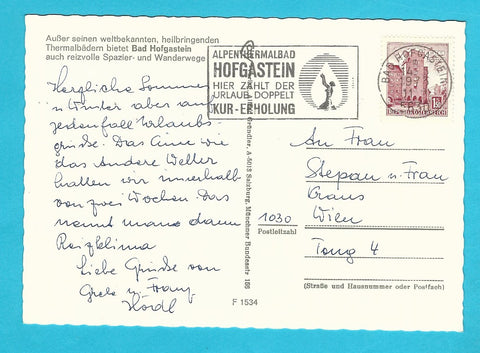 Außer seinen weltbekannten, heilbringenden
Thermalbädern bietet Bad Hofgastein
auch reizvolle Spazier- und Wanderwege
ALPENTHERMALBAD
HOFGASTEIN
HIER ZÄHLT DER
URLAUB DOPPELT
KUR-ERHOLUNG
BAD HOFGASTEIN
Herzliche Sommer
u Winter aber auf
jedenfall Urlaubs-
grüße. Das Eine wie
das Andere Wetter
hatten wir innerhalb
von zwei Wochen. Das
nennt man dann
Reizklima
Liebe Grüße von
Grete u. Franz
Hördl
A-5013 Salzburg, Münchner Bundesstr. 106
F 1534
An Frau
Stepan u. Frau
Kraus
1030 Wien
Postleitzahl
Tong 4
(Straße und Hausnummer oder Postfach)